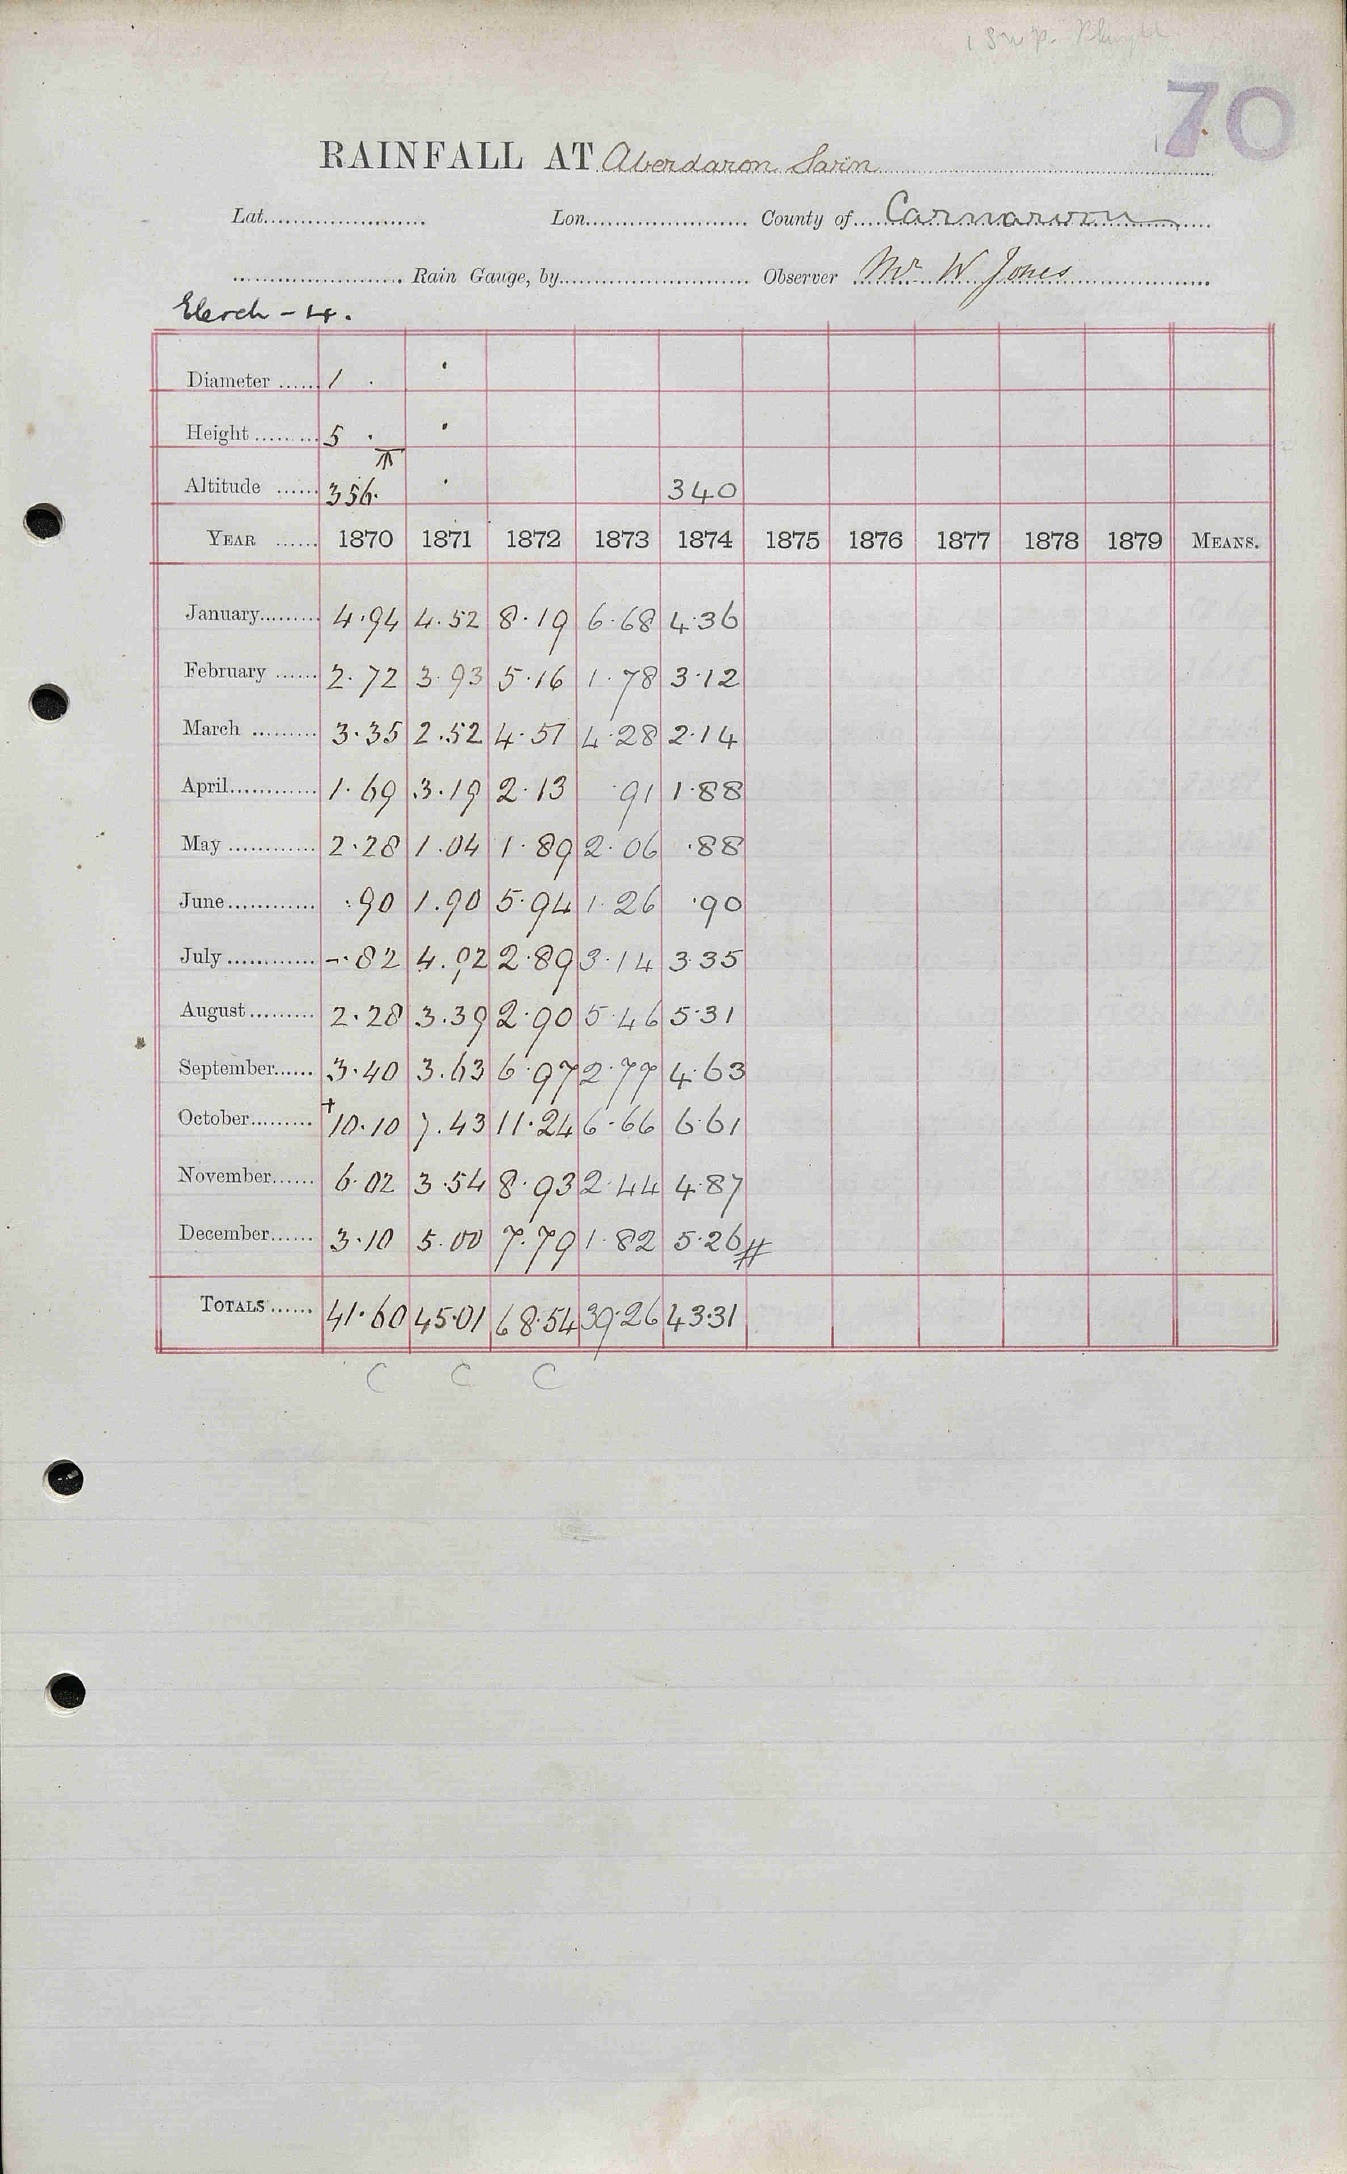 70
RAINFALL AT Aberdaron Sarn
Lat. Lon. County of Carnarvon
Rain Gauge, by Observer Mr W Jones
Diameter 1 .
Height 5 .
Altitude 356. 340
YEAR 1870 1871 1872 1873 1874 1875 1876 1877 1878 1879 MEANS.
January 4.94 4.52 8.19 6.68 4.36
February 2.72 3.93 5.16 1.78 3.12
March 3.35 2.52 4.51 4.28 2.14
April 1.69 3.19 2.13 .91 1.88
May 2.28 1.04 1.89 2.06 .88
June .90 1.90 5.94 1.26 .90
July -.82 4.92 2.89 3.14 3.35
August 2.28 3.39 2.90 5.46 5.31
September 3.40 3.63 6.97 2.77 4.63
October +10.10 7.43 11.24 6.66 6.61
November 6.02 3.54 8.93 2.44 4.87
December 3.10 5.00 7.79 1.82 5.26 #
TOTALS 41.60 45.01 68.54 39.26 43.31
C C C